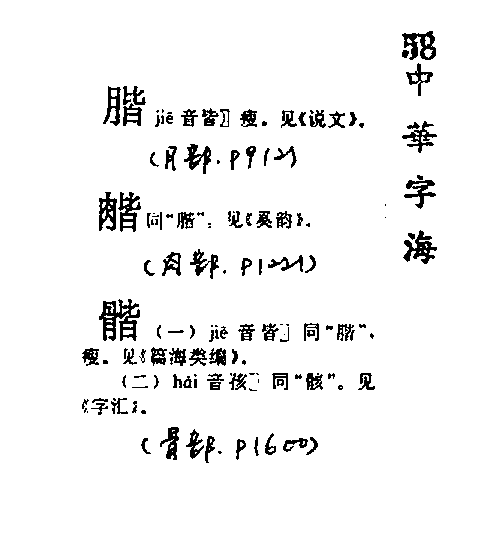 58
中華字海
腊 jiē 音皆〗瘦。见《说文》。
(月部.P912)
同“腊”。见《奚韵》。
(肉部.P1221)
(一) jiē 音皆〗同“腊”,
瘦。见《篇海类编》。
(二) hái 音孩〗同“骸”。见
《字汇》。
(骨部.P1600)